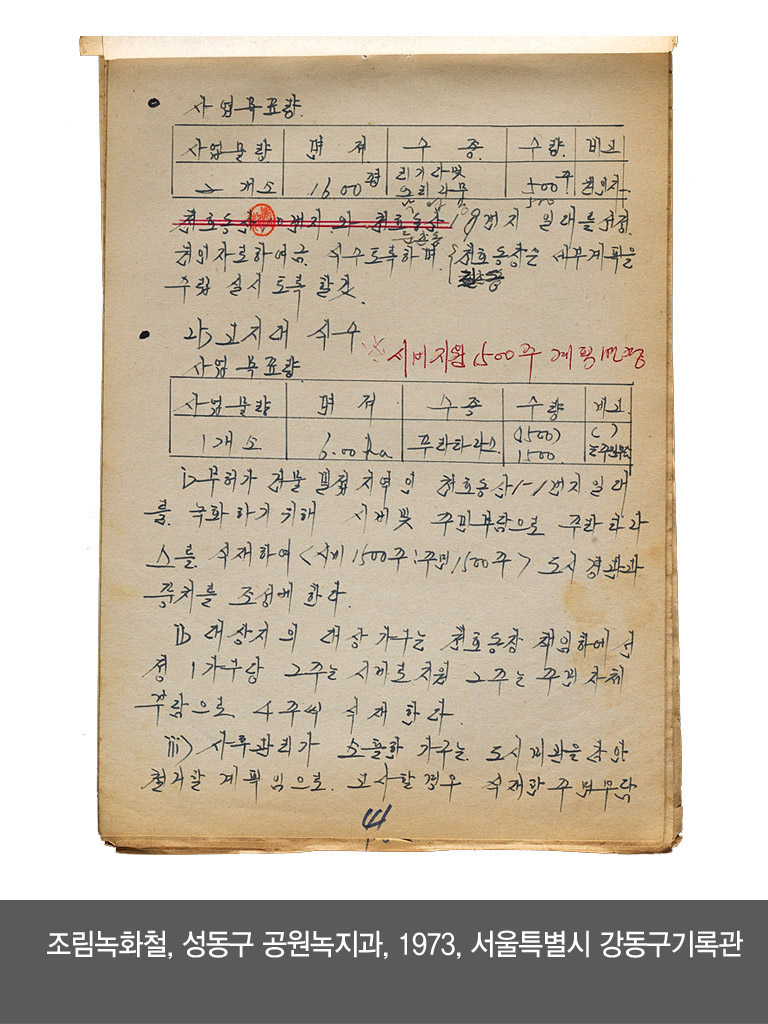 사업목표량.
사업물량 면적 수종 수량 비고
2개소 1600평 리기다및 오리나무 500주 500
천호동산 번지 와 천호동산 18번지 일대를 선정.
하여금 식수토록하며 천호동장은 세부계획을
수립 실시토록 할것.
라) 고지대 식수
※ 시비지원 1500주 계획
사업목표량
사업물량 면적 수종 수량 비고
1개소 6.00ha 푸라타라스 (1500) 1500 ( )
i) 무허가 건물 밀집지역인 천호동산 1-1번지일대
를 녹화하기 위해 시비및 주민부담으로 푸라타라
스를 식재하여 <시비1500주:주민1500주> 도시경관과
풍치를 조성케 한다.
ii) 대상지의 대상가구는 천호동장 책임하에 선
정 1가구당 2주는 시비로 지원 2주는 주민자체
부담으로 4주씩 식재한다.
iii) 사후관리가 소홀한 가구는 도시미관을 감안
철거할 계획임으로. 고사할경우 식재한 주민부담
44
조림녹화철, 성동구 공원녹지과, 1973, 서울특별시 강동구기록관